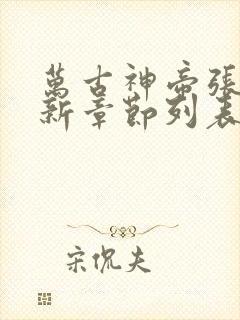 萬古神帝張
新章節列表
宋侃夫